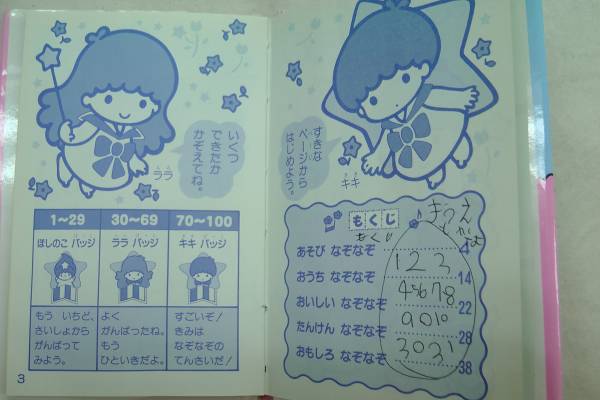 いくつ
できたか
かぞえてね。
ララ
1~29
30~69
70~100
ほしのこ バッジ
ララ バッジ
キキ バッジ
もう いちど、
さいしょから
がんばって
みよう。
よく
がんばったね。
もう
ひといきだよ。
すごいぞ!
きみは
なぞなぞの
てんさいだ!
3
すきな
ページから
はじめよう。
キキ
もくじ
あそび なぞなぞ 4
123
おうち なぞなぞ 14
45678
おいしい なぞなぞ 22
9010
たんけん なぞなぞ 28
3031
おもしろ なぞなぞ 38